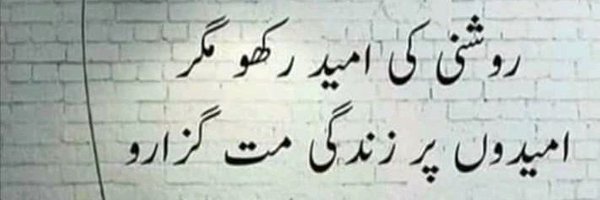 روشنی کی امید رکھو مگر
امیدوں پر زندگی مت گزارو